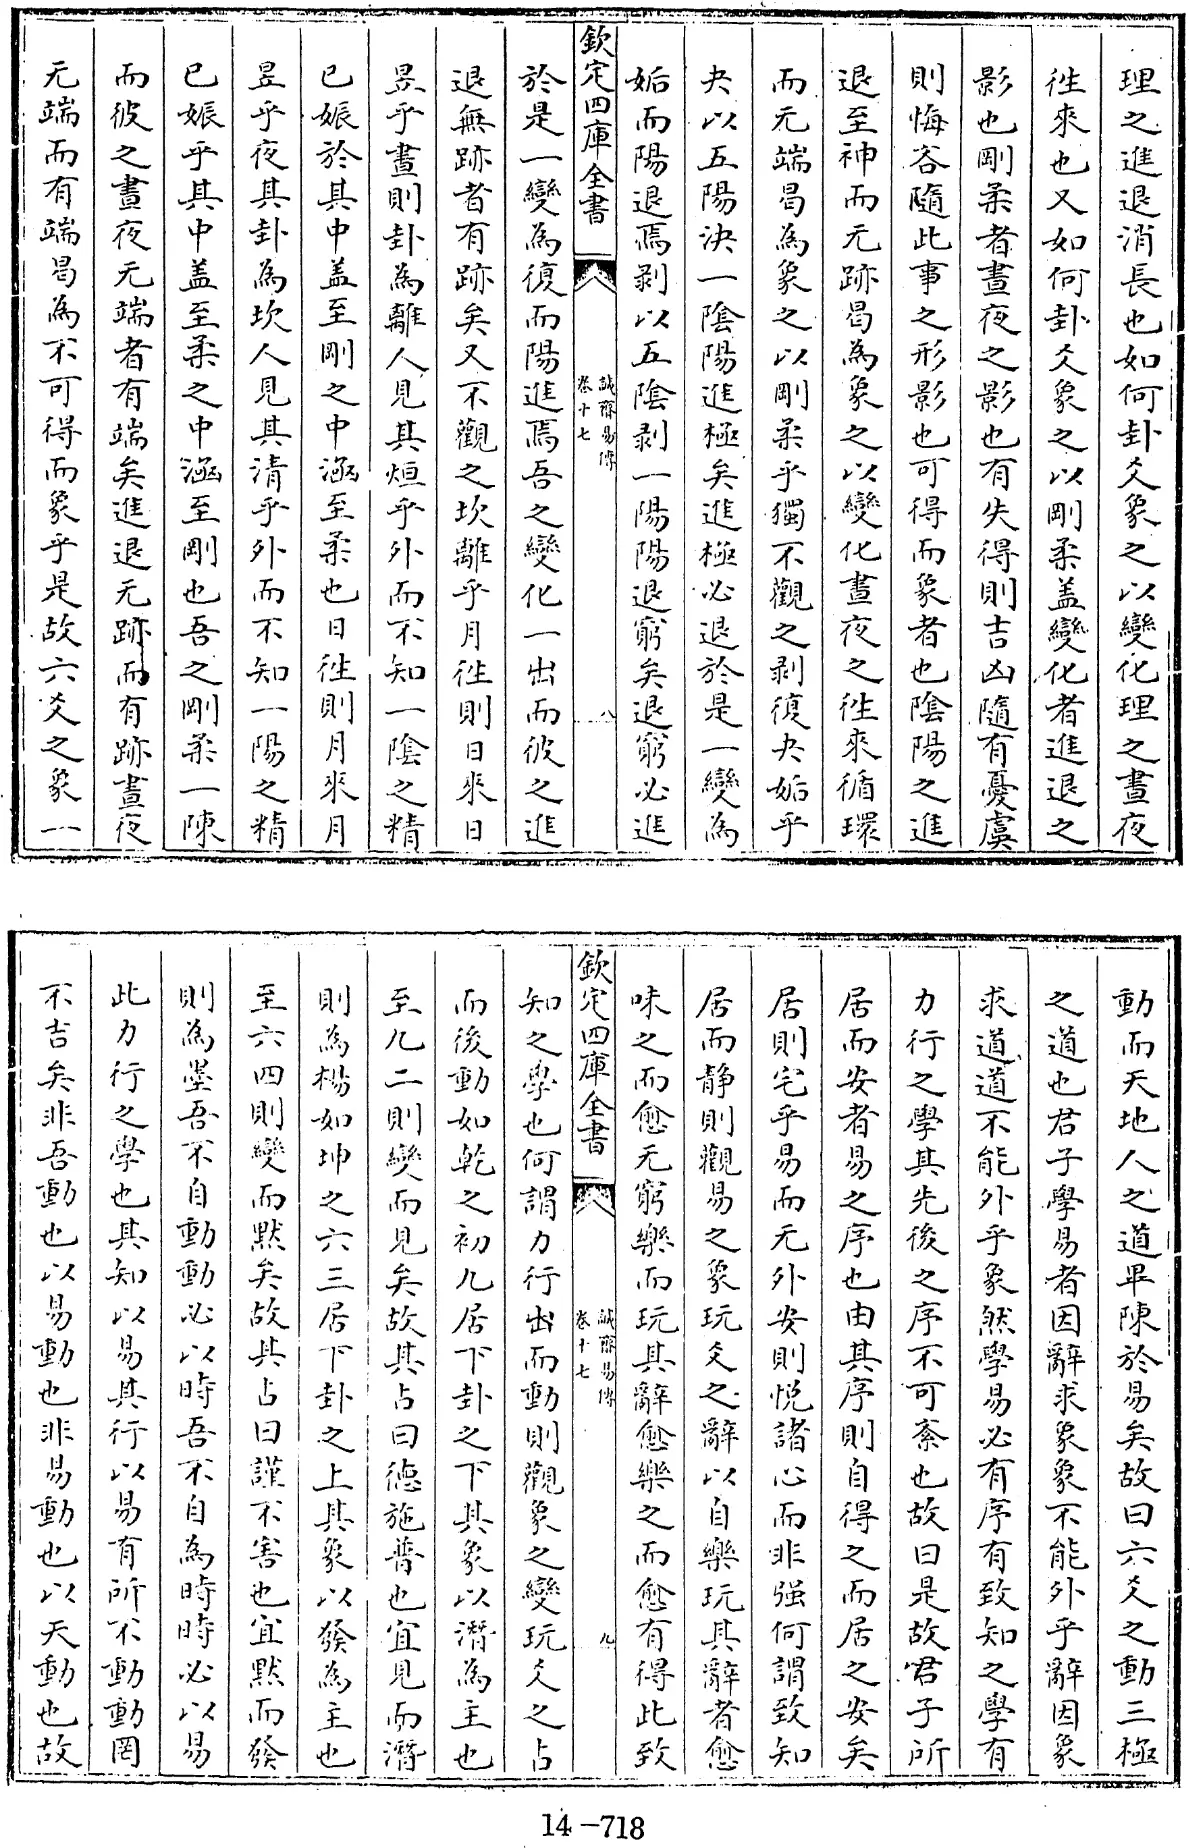 理之進退消長也如何卦爻象之以變化理之晝夜
徃來也又如何卦爻象之以剛柔盖變化者進退之
影也剛柔者晝夜之影也有失得則吉凶隨有憂虞
則悔吝隨此事之形影也可得而象者也陰陽之進
退至神而无跡曷為象之以變化晝夜之徃來循環
而无端曷為象之以剛柔乎獨不觀之剥復夬姤乎
夬以五陽決一陰陽進極矣進極必退於是一變為
姤而陽退焉剥以五陰剥一陽陽退窮矣退窮必進
欽定四庫全書
誠齋易傳
卷十七
八
於是一變為復而陽進焉吾之變化一出而彼之進
退無跡者有跡矣又不觀之坎離乎月徃則日來日
昱乎晝則卦為離人見其烜乎外而不知一陰之精
已娠於其中盖至剛之中涵至柔也日徃則月來月
昱乎夜其卦為坎人見其清乎外而不知一陽之精
已娠乎其中盖至柔之中涵至剛也吾之剛柔一陳
而彼之晝夜无端者有端矣進退无跡而有跡晝夜
无端而有端曷為不可得而象乎是故六爻之象一
動而天地人之道畢陳於易矣故曰六爻之動三極
之道也君子學易者因辭求象象不能外乎辭因象
求道道不能外乎象然學易必有序有致知之學有
力行之學其先後之序不可紊也故曰是故君子所
居而安者易之序也由其序則自得之而居之安矣
居則宅乎易而无外安則悦諸心而非强何謂致知
居而静則觀易之象玩爻之辭以自樂玩其辭者愈
味之而愈无窮樂而玩其辭愈樂之而愈有得此致
欽定四庫全書
誠齋易傳
卷十七
九
知之學也何謂力行出而動則觀象之變玩爻之占
而後動如乾之初九居下卦之下其象以潛為主也
至九二則變而見矣故其占曰德施普也宜見而潛
則為楊如坤之六三居下卦之上其象以發為主也
至六四則變而默矣故其占曰謹不害也宜默而發
則為墨吾不自動動必以時吾不自為時時必以易
此力行之學也其知以易其行以易有所不動動罔
不吉矣非吾動也以易動也非易動也以天動也故
14-718